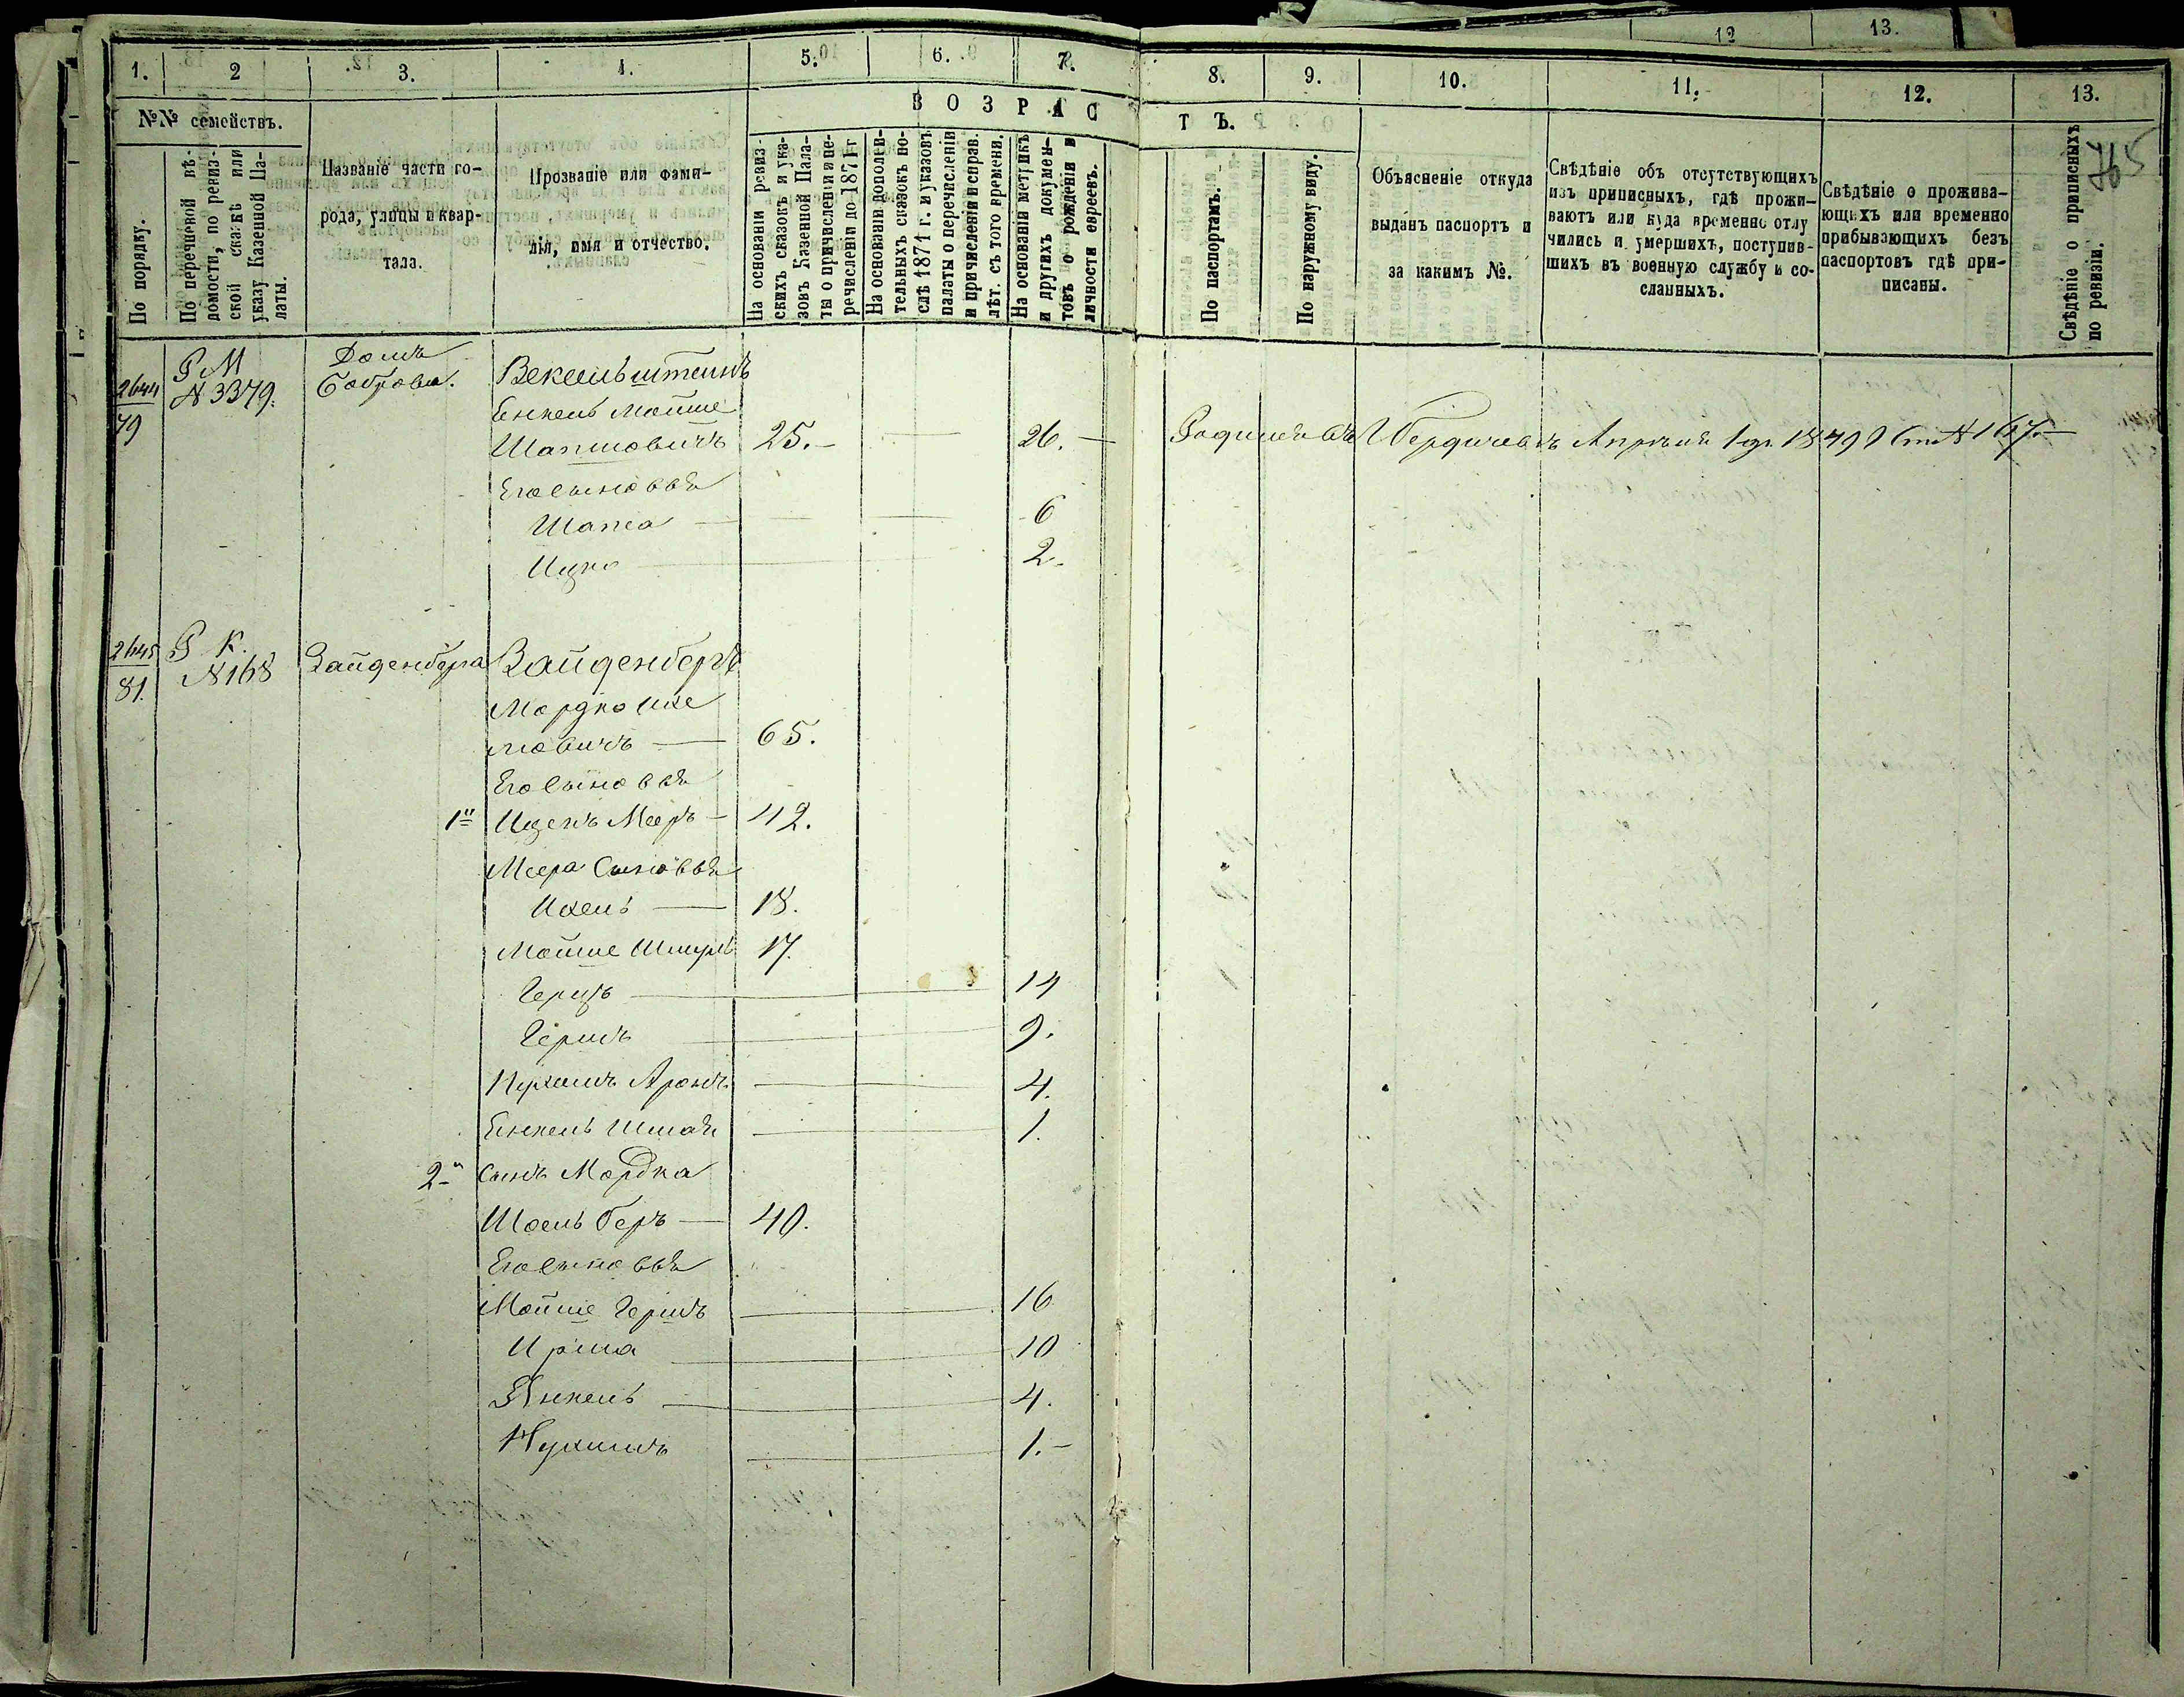 12 13.
1. 2 3. 4. 5. 6. 7. 8. 9. 10. 11. 12. 13.
765
№№ семействъ.
По порядку.
По перечневой вѣ-
домости, по ревиз-
ской сказкѣ или
указу Казенной Па-
латы.
Названіе части го-
рода, улицы и квар-
тала.
Прозваніе или фами-
лія, имя и отчество.
ВОЗРАСТЪ.
На основаніи ревиз-
скихъ сказокъ и ука-
зовъ Казенной Пала-
ты о причисленіи и пе-
речисленіи до 1871 г.
На основаніи дополни-
тельныхъ сказокъ по-
слѣ 1871 г. и указовъ
палаты о перечисленіи
и причисленіи и исправ.
лѣт. съ того времени.
На основаніи метрикъ
и другихъ докумен-
товъ о рожденіи и
личности евреевъ.
По паспортамъ.
По наружному виду.
Объясненіе откуда
выданъ паспортъ и
за какимъ №.
Свѣдѣніе объ отсутствующихъ
изъ приписныхъ, гдѣ прожи-
ваютъ или куда временно отлу
чились и умершихъ, поступив-
шихъ въ военную службу и со-
сланныхъ.
Свѣдѣніе о прожива-
ющихъ или временно
прибывающихъ безъ
паспортовъ гдѣ при-
писаны.
Свѣдѣніе о приписныхъ
по ревизіи.
2644
79
Р М
№ 3379.
Домъ
Боброва.
Векельштейнъ
Енкель Мойше
Шапшовичъ 25. — 26. — Бердичевъ Апрѣля 1 дн. 1879 № 167.
Его сыновья
Шапса 6
Ицко 2.
2645
81.
Р К.
№ 168
Зайденберга
Зайденбергъ
Мордко
мовичъ — 65.
Его сыновья
1й Иценъ Мееръ — 42.
Меера Сыновья
Ихель — 18.
Мойше Шмуль 17.
Герцъ — 14
Гершъ 9.
Нухимъ Аронъ — 4.
Енкель Шмая — 1.
2й сынъ Мордка
Шоель Беръ — 40.
Его сыновья
Мойше Гершъ — 16
Ирша — 10
Янкель — 4.
Нухимъ — 1.—